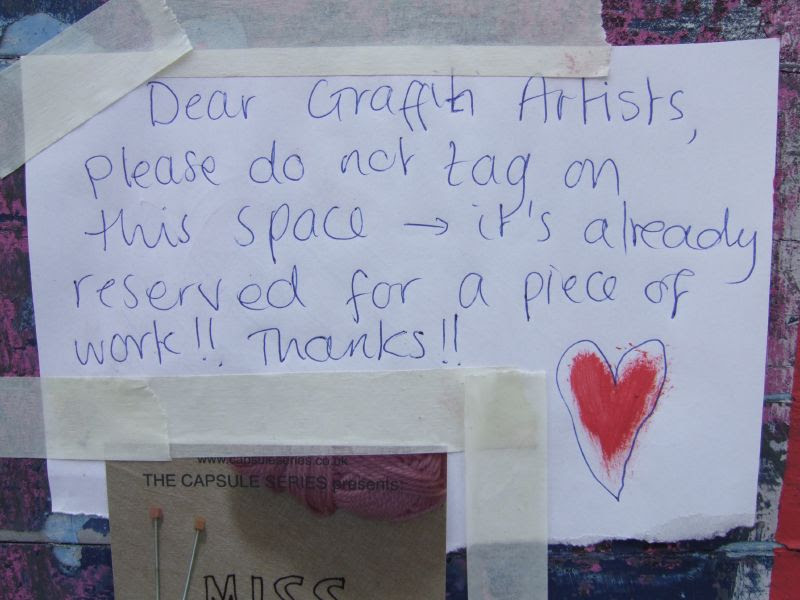 Dear Graffiti Artists,
please do not tag on
this space → it's already
reserved for a piece of
work!! Thanks!!
www.capsuleseries.co.uk
THE CAPSULE SERIES presents:
MISS